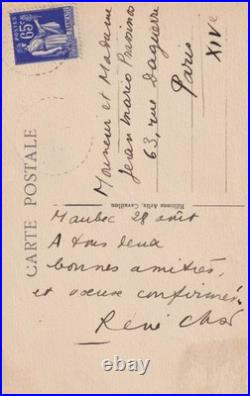 CARTE POSTALE
POSTES
65c
Monsieur et Madame
Jean Mario Prassinos
63, rue Daguerre
Paris
XIVe
Editions Arlis, Cavaillon
Maubec 28 août
A tous deux
bonnes amitiés,
et vœux confirmés.
René Char